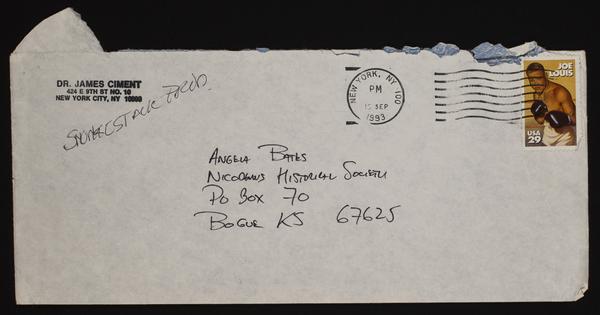 DR. JAMES CIMENT
424 E 9TH ST NO. 10
NEW YORK CITY, NY 10009
SMOKESTACK PROD.
NEW YORK, NY 100
PM
15 SEP
1993
JOE
LOUIS
USA
29
ANGELA BATES
NICODEMUS HISTORICAL SOCIETY
PO BOX 70
BOGUE KS 67625